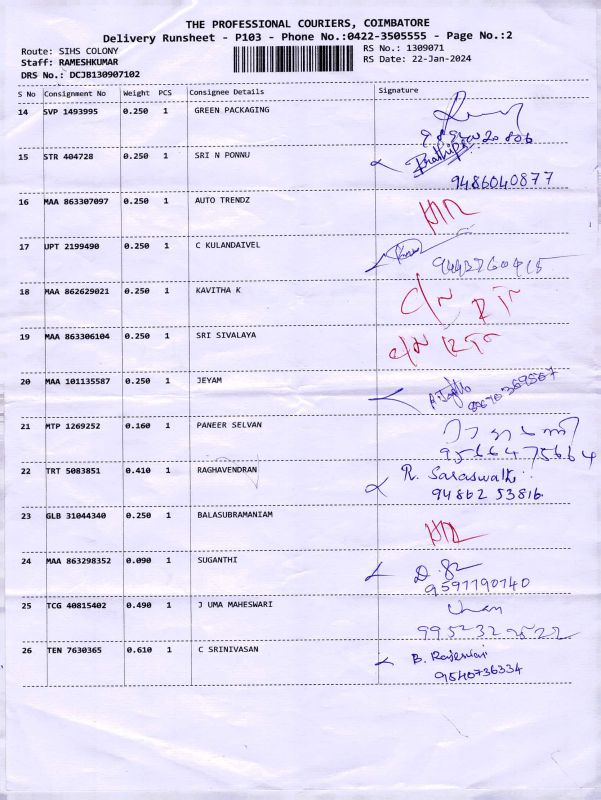 THE PROFESSIONAL COURIERS, COIMBATORE
Delivery Runsheet - P103 - Phone No.:0422-3505555 - Page No.:2
Route: SIHS COLONY
RS No.: 1309071
Staff: RAMESHKUMAR
RS Date: 22-Jan-2024
DRS No.: DCJB130907102
S No Consignment No Weight PCS Consignee Details Signature
14 SVP 1493995 0.250 1 GREEN PACKAGING
15 STR 404728 0.250 1 SRI N PONNU
9486040877
16 MAA 863307097 0.250 1 AUTO TRENDZ
17 UPT 2199490 0.250 1 C KULANDAIVEL
9443760415
18 MAA 862629021 0.250 1 KAVITHA K
19 MAA 863306104 0.250 1 SRI SIVALAYA
20 MAA 101135587 0.250 1 JEYAM
21 MTP 1269252 0.160 1 PANEER SELVAN
9566475664
22 TRT 5083851 0.410 1 RAGHAVENDRAN R. Saraswathi
94862 53816
23 GLB 31044340 0.250 1 BALASUBRAMANIAM
24 MAA 863298352 0.090 1 SUGANTHI
9597790740
25 TCG 40815402 0.490 1 J UMA MAHESWARI
26 TEN 7630365 0.610 1 C SRINIVASAN
9540736334